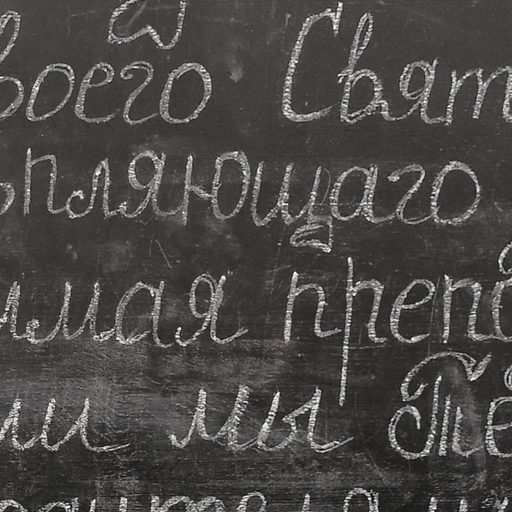 воего Свят
пляющаго
имая преп
ли мы Те